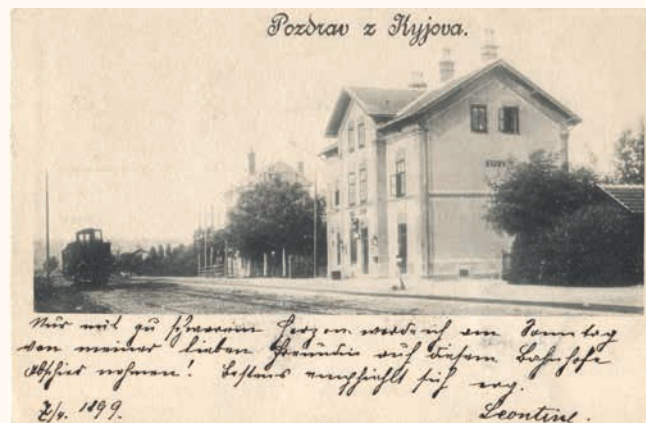 Pozdrav z Kyjova.
Nur mit zu schwerem Herzen werde ich am Sonntag
von meiner lieben Freundin auf diesem Bahnhofe
Abschied nehmen! Bestens empfiehlt sich erg.
7/4. 1899.
Leontine.